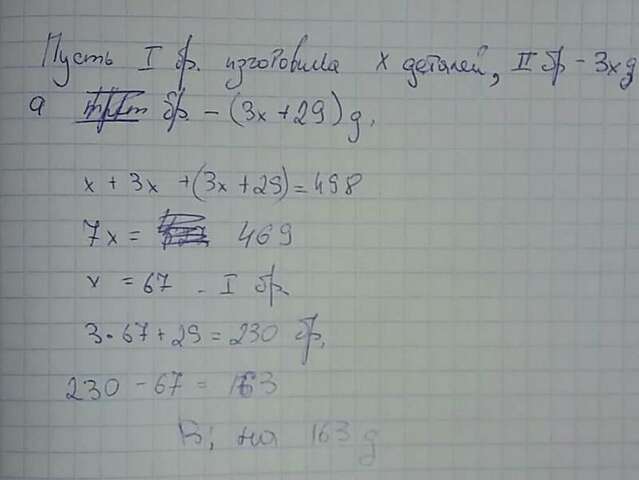 Пусть I бр. изготовила x деталей, II бр - 3x д
а бр. - (3x + 29) д.
x + 3x + (3x + 29) = 498
7x = 469
x = 67 - I бр.
3 · 67 + 29 = 230 бр.
230 - 67 = 163
на 163 д